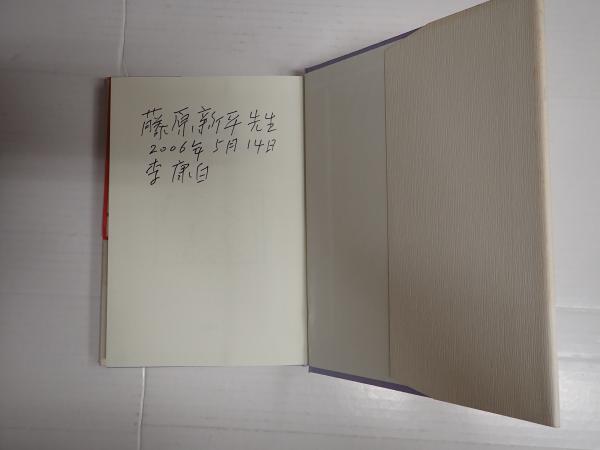 藤原新平先生
2006年5月14日
李康白